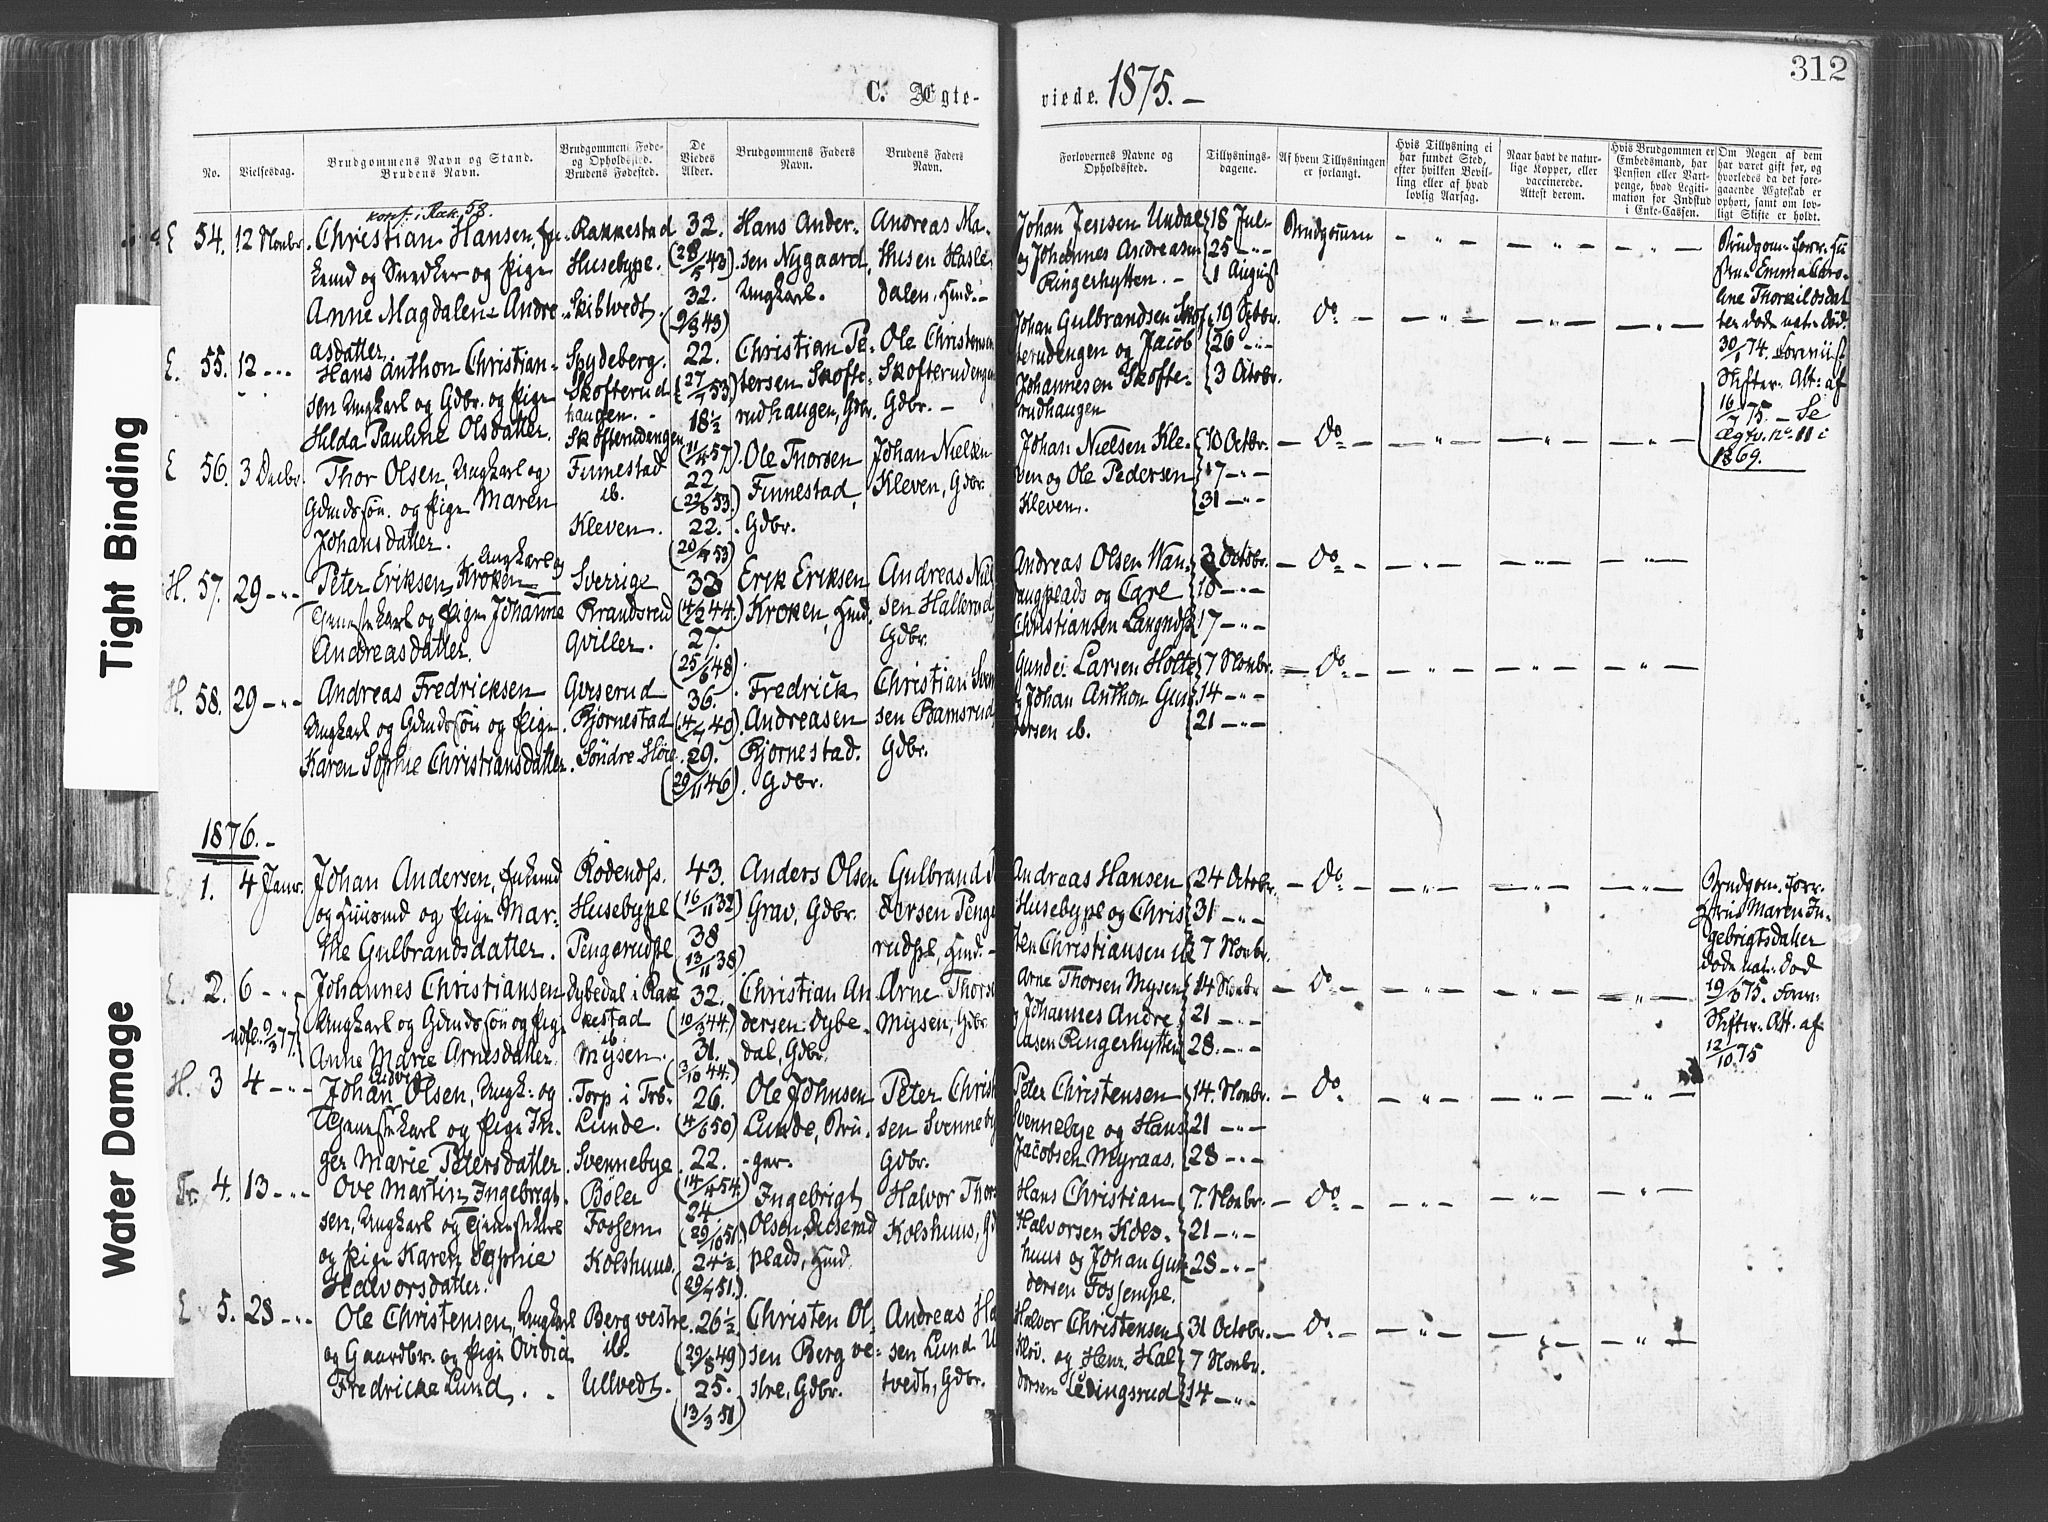 312
C. Ægte-
viede. 1875. —
No.
Vielsesdag.
Brudgommens Navn og Stand.
Brudens Navn.
Brudgommens Føde-
og Opholdssted.
Brudens Fødested.
De
Viedes
Alder.
Brudgommens Faders
Navn.
Brudens Faders
Navn.
Forlovernes Navne og
Opholdssted.
Tillysnings-
dagene.
Af hvem Tillysningen
er forlangt.
Hvis Tillysning ei
har fundet Sted,
efter hvilken Bevil-
ling eller af hvad
lovlig Aarsag.
Naar havt de natur-
lige Kopper, eller
vaccinerede.
Attest derom.
Hvis Brudgommen er
Embedsmand, har
Pension eller Vart-
penge, hvad Legiti-
mation for Indskud
i Enke-Cassen.
Om Nogen af dem
har været gift før, og
hvorledes da det fore-
gaaende Ægteskab er
ophørt, samt om lov-
ligt Skifte er holdt.
E 54. 12 Novbr.
konf. i Rak. 58.
Christian Hansen, En-
kemd og Snedker og Pige
Anne Magdalene Andre-
asdatter
Rakkestad
Husebype.
Skibtvedt.
32.
(28/5 43)
32.
(9/3 43)
Hans Ander-
sen Nygaard,
Ungkarl.
Andreas Ma-
thisen Hasle
dalen, Hmd. —
Johan Jensen Undal
og Johannes Andreasen
Ringerhytten. —
18 Jul-
25 — " —
1 August
Brudgommen
Brudgom. forr. Hu
stru Emma Caro-
line Thorkildsdat
ter døde nat. Død.
30/1 74. Foreviist
Skifter. Att. af
16/7 75. — Se
Ægtv. no. 11 i
1869.
E. 55. 12 — " —
Hans Anthon Christian-
sen Ungkarl og Gdbr. og Pige
Hilda Pauline Olsdatter.
Spydeberg.
Skofterud
haugen.
Skofterudengen
22.
(27/7 53)
18½
(11/4 57)
Christian Pe-
tersen Skofte-
rudhaugen, Gdbr.
Ole Christensen
Skofterudengen
Gdbr. —
Johan Gulbrandsen Skof
terudengen og Jacob
Johannesen Skofte-
rudhaugen
19 Septbr.
26 — " —
3 Octobr.
— Do —
E 56. 3 Decbr
Thor Olsen, Ungkarl og
Gdmdssøn. og Pige Maren
Johansdatter.
Finnestad
ib.
Kleven.
22
(22/8 53.)
22.
(20/7 53)
Ole Thorsen
Finnestad,
Gdbr.
Johan Nielsen
Kleven, Gdbr
Johan Nielsen Kle-
ven og Ole Pedersen
Kleven.
10 Octbr.
17 — " —
31 — " —
— Do —
H. 57. 29 — " —
Peter Eriksen Kroken Ungkarl og
Tjenestekarl og Pige Johanne
Andreasdatter.
Sverrige
Brandsrud
Gviller.
33
(4/2 44.)
27.
(25/6 48)
Erik Eriksen
Kroken, Hmd.
Andreas Niel
sen Hallerud,
Gdbr.
Andreas Olsen Wan-
og Carl
Christiansen
3 Octobr.
10 — " —
17 — " —
— Do —
H. 58. 29 — " —
Andreas Fredricksen
Ungkarl og Gdmdssøn og Pige
Karen Sophie Christiansdatter.
Gviserud
Bjørnestad
Søndre
36.
(4/7 40)
29.
(29/11 46)
Fredrick
Andreasen
Bjørnestad.
Gdbr.
Christian Sven
sen Ramsrud,
Gdbr.
Larsen Holte
og Johan Anthon Gun
dersen ib.
7 Novbr.
14 — " —
21 — " —
— Do —
1876. —
E. 1. 4 Janr.
Johan Andersen, Enkemd
og Huusmd og Pige Mar-
the Gulbrandsdatter.
Rødends.
Husebype
Pengerudpl
43.
(16/11 32)
38
(13/11 38)
Anders Olsen
Grav, Gdbr.
Gulbrand
dersen Penge
rudpl, Hmd. —
Andreas Hansen
Husebype og Chris
ten Christiansen ib
24 Octobr.
31 — " —
7 Novbr.
— Do —
Brudgom. forr.
Hustru Maren In-
gebrigtsdatter
døde nat. Død
19/3 75. Forev.
Skifter. Att. af
12/10 75
E. 2. 6 — " —
udfl. 9/3 77.
Johannes Christiansen
Ungkarl og Gdmdssøn og Pige
Anne Marie Arnesdatter.
Dybedal i Rak
kestad
ib
Mysen.
32.
(10/3 44.)
31.
(3/10 44.)
Christian An
dersen Dybe-
dal, Gdbr.
Arne Thors
Mysen, Gdbr
Arne Thorsen Mysen
og Johannes Andre
asen Ringerhytten
14 Novbr
21 — " —
28. — " —
— Do —
H. 3 4 — " —
Johan Ludvig Olsen, Ungk. og
Tjenestekarl og Pige In-
ger Marie Petersdatter
Torp i Trb.
Lunde.
Svennebye
26.
(4/6 50)
22.
(14/4 54.)
Ole Johnsen
Lunde, Bru-
ger.
Peter Christ
sen Svenneby
Gdbr.
Peter Christensen
Svennebye og Hans
Jacobsen Myraas.
14. Novbr.
21 — " —
28 — " —
— Do —
Tr. 4. 13 — " —
Ove Martin Ingebrigt-
sen, Ungkarl og Tjenestekarl
og Pige Karen Sophie
Halvorsdatter.
Bøler
Fossem
Kolshuus.
24
(29/10 51)
24½
(29/7 51.)
Ingebrigt
Olsen,
plads, Hmd.
Halvor Thor
Kolshuus, Gd
Hans Christian
Halvorsen Kols-
huus og Johan Gun
dersen Fossempl.
7. Novbr.
21 — " —
28 — " —
— Do —
E 5. 28 — " —
Ole Christensen, Ungkarl
og Gaardbr. og Pige Ovidia
Fredricke Lund.
Berg vestre
ib.
Ullvedt.
26½
(29/8 49)
25.
(13/3 51)
Christen Ol-
sen Berg ve-
stre, Gdbr.
Andreas Ha
sen Lund U
tvedt, Gdbr.
Halvor Christensen
Kløv. og Henr. Hal
dorsen Ledingsrud
31 Octobr.
7 Novbr.
14 — " —
— Do —
Tight Binding
Water Damage